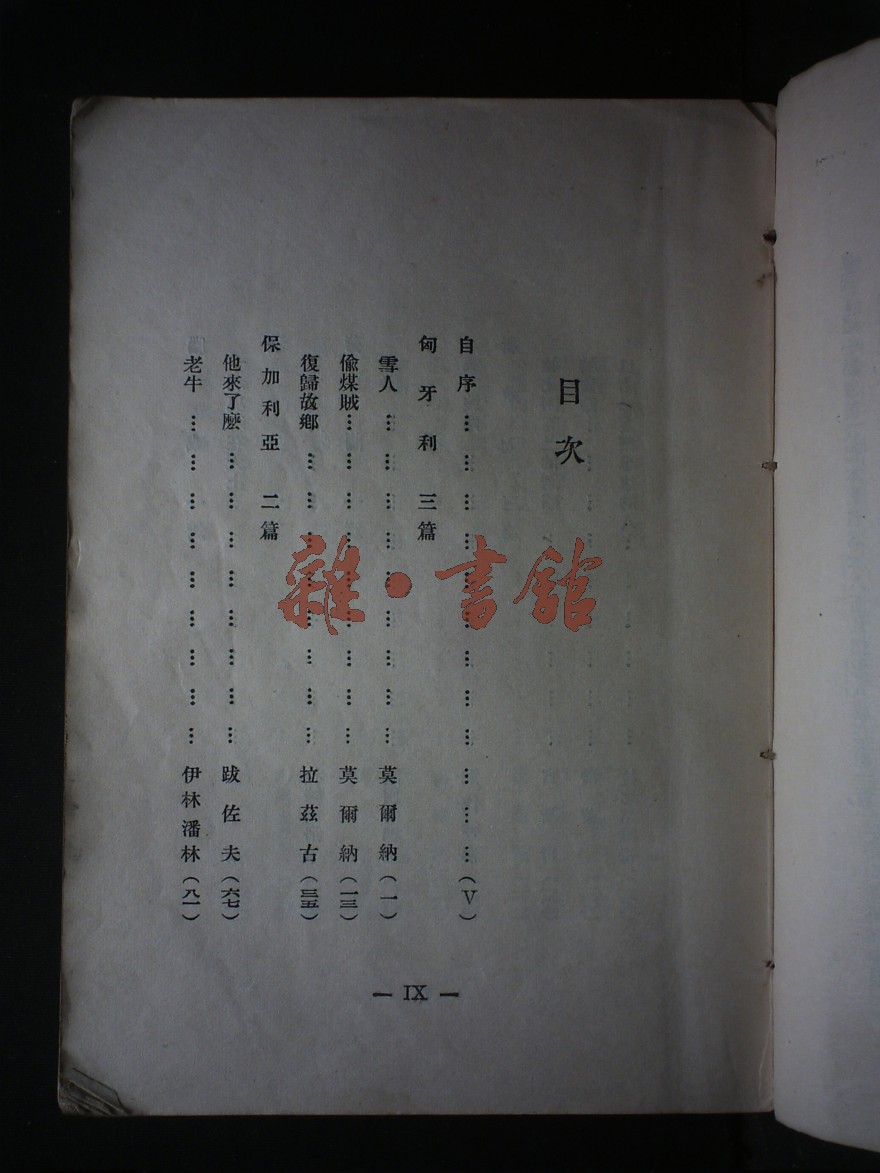 目次
自序………………………………(V)
匈牙利 三篇
雪人…………………………莫爾納(一)
偸煤賊…………………………莫爾納(一三)
復歸故鄕…………………………拉茲古(三五)
保加利亞 二篇
他來了麽…………………………跋佐夫(六七)
老牛…………………………伊林潘林(八一)
— IX —
雜·書館